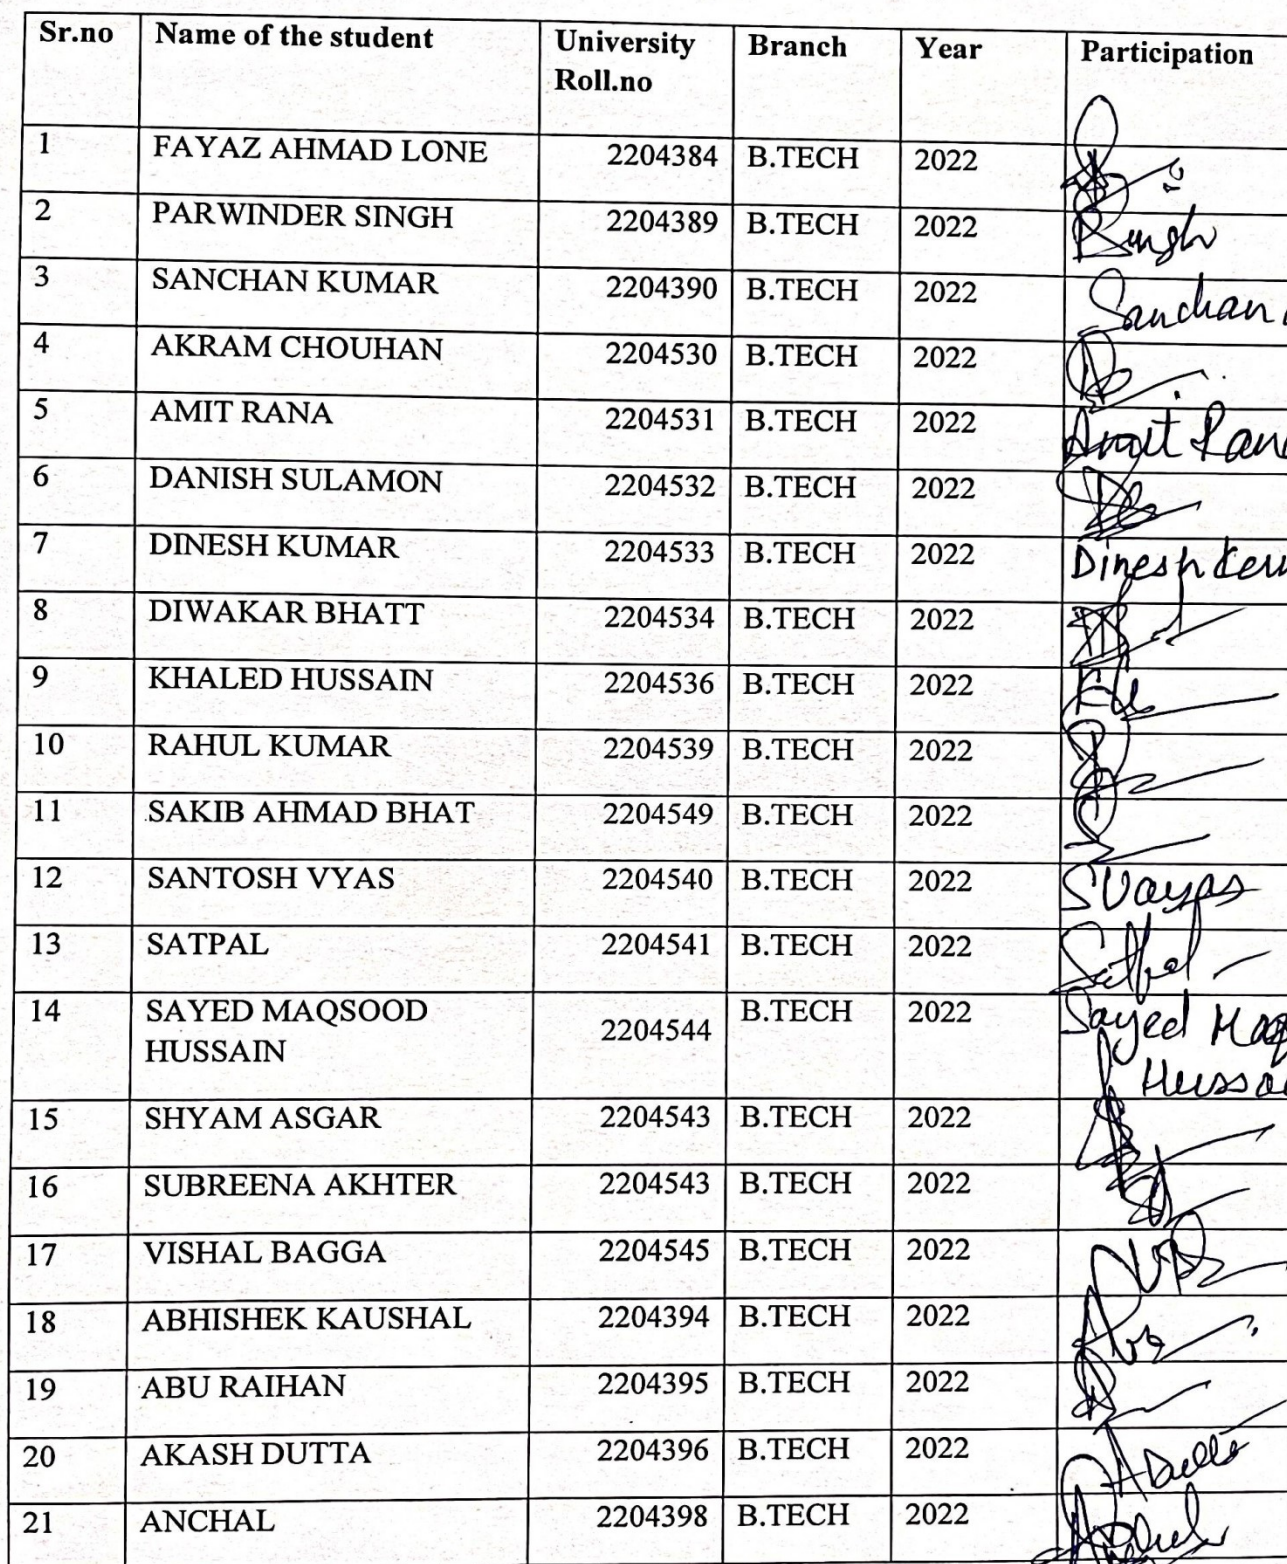 Sr.no Name of the student University Branch Year Participation
Roll.no
1 FAYAZ AHMAD LONE 2204384 B.TECH 2022
2 PARWINDER SINGH 2204389 B.TECH 2022
3 SANCHAN KUMAR 2204390 B.TECH 2022 Sanchan
4 AKRAM CHOUHAN 2204530 B.TECH 2022
5 AMIT RANA 2204531 B.TECH 2022 Amit Rana
6 DANISH SULAMON 2204532 B.TECH 2022
7 DINESH KUMAR 2204533 B.TECH 2022 Dinesh
8 DIWAKAR BHATT 2204534 B.TECH 2022
9 KHALED HUSSAIN 2204536 B.TECH 2022
10 RAHUL KUMAR 2204539 B.TECH 2022
11 SAKIB AHMAD BHAT 2204549 B.TECH 2022
12 SANTOSH VYAS 2204540 B.TECH 2022 SVayas
13 SATPAL 2204541 B.TECH 2022 Satpal
14 SAYED MAQSOOD 2204544 B.TECH 2022 Sayed Maq
HUSSAIN Hussa
15 SHYAM ASGAR 2204543 B.TECH 2022
16 SUBREENA AKHTER 2204543 B.TECH 2022
17 VISHAL BAGGA 2204545 B.TECH 2022
18 ABHISHEK KAUSHAL 2204394 B.TECH 2022
19 ABU RAIHAN 2204395 B.TECH 2022
20 AKASH DUTTA 2204396 B.TECH 2022
21 ANCHAL 2204398 B.TECH 2022